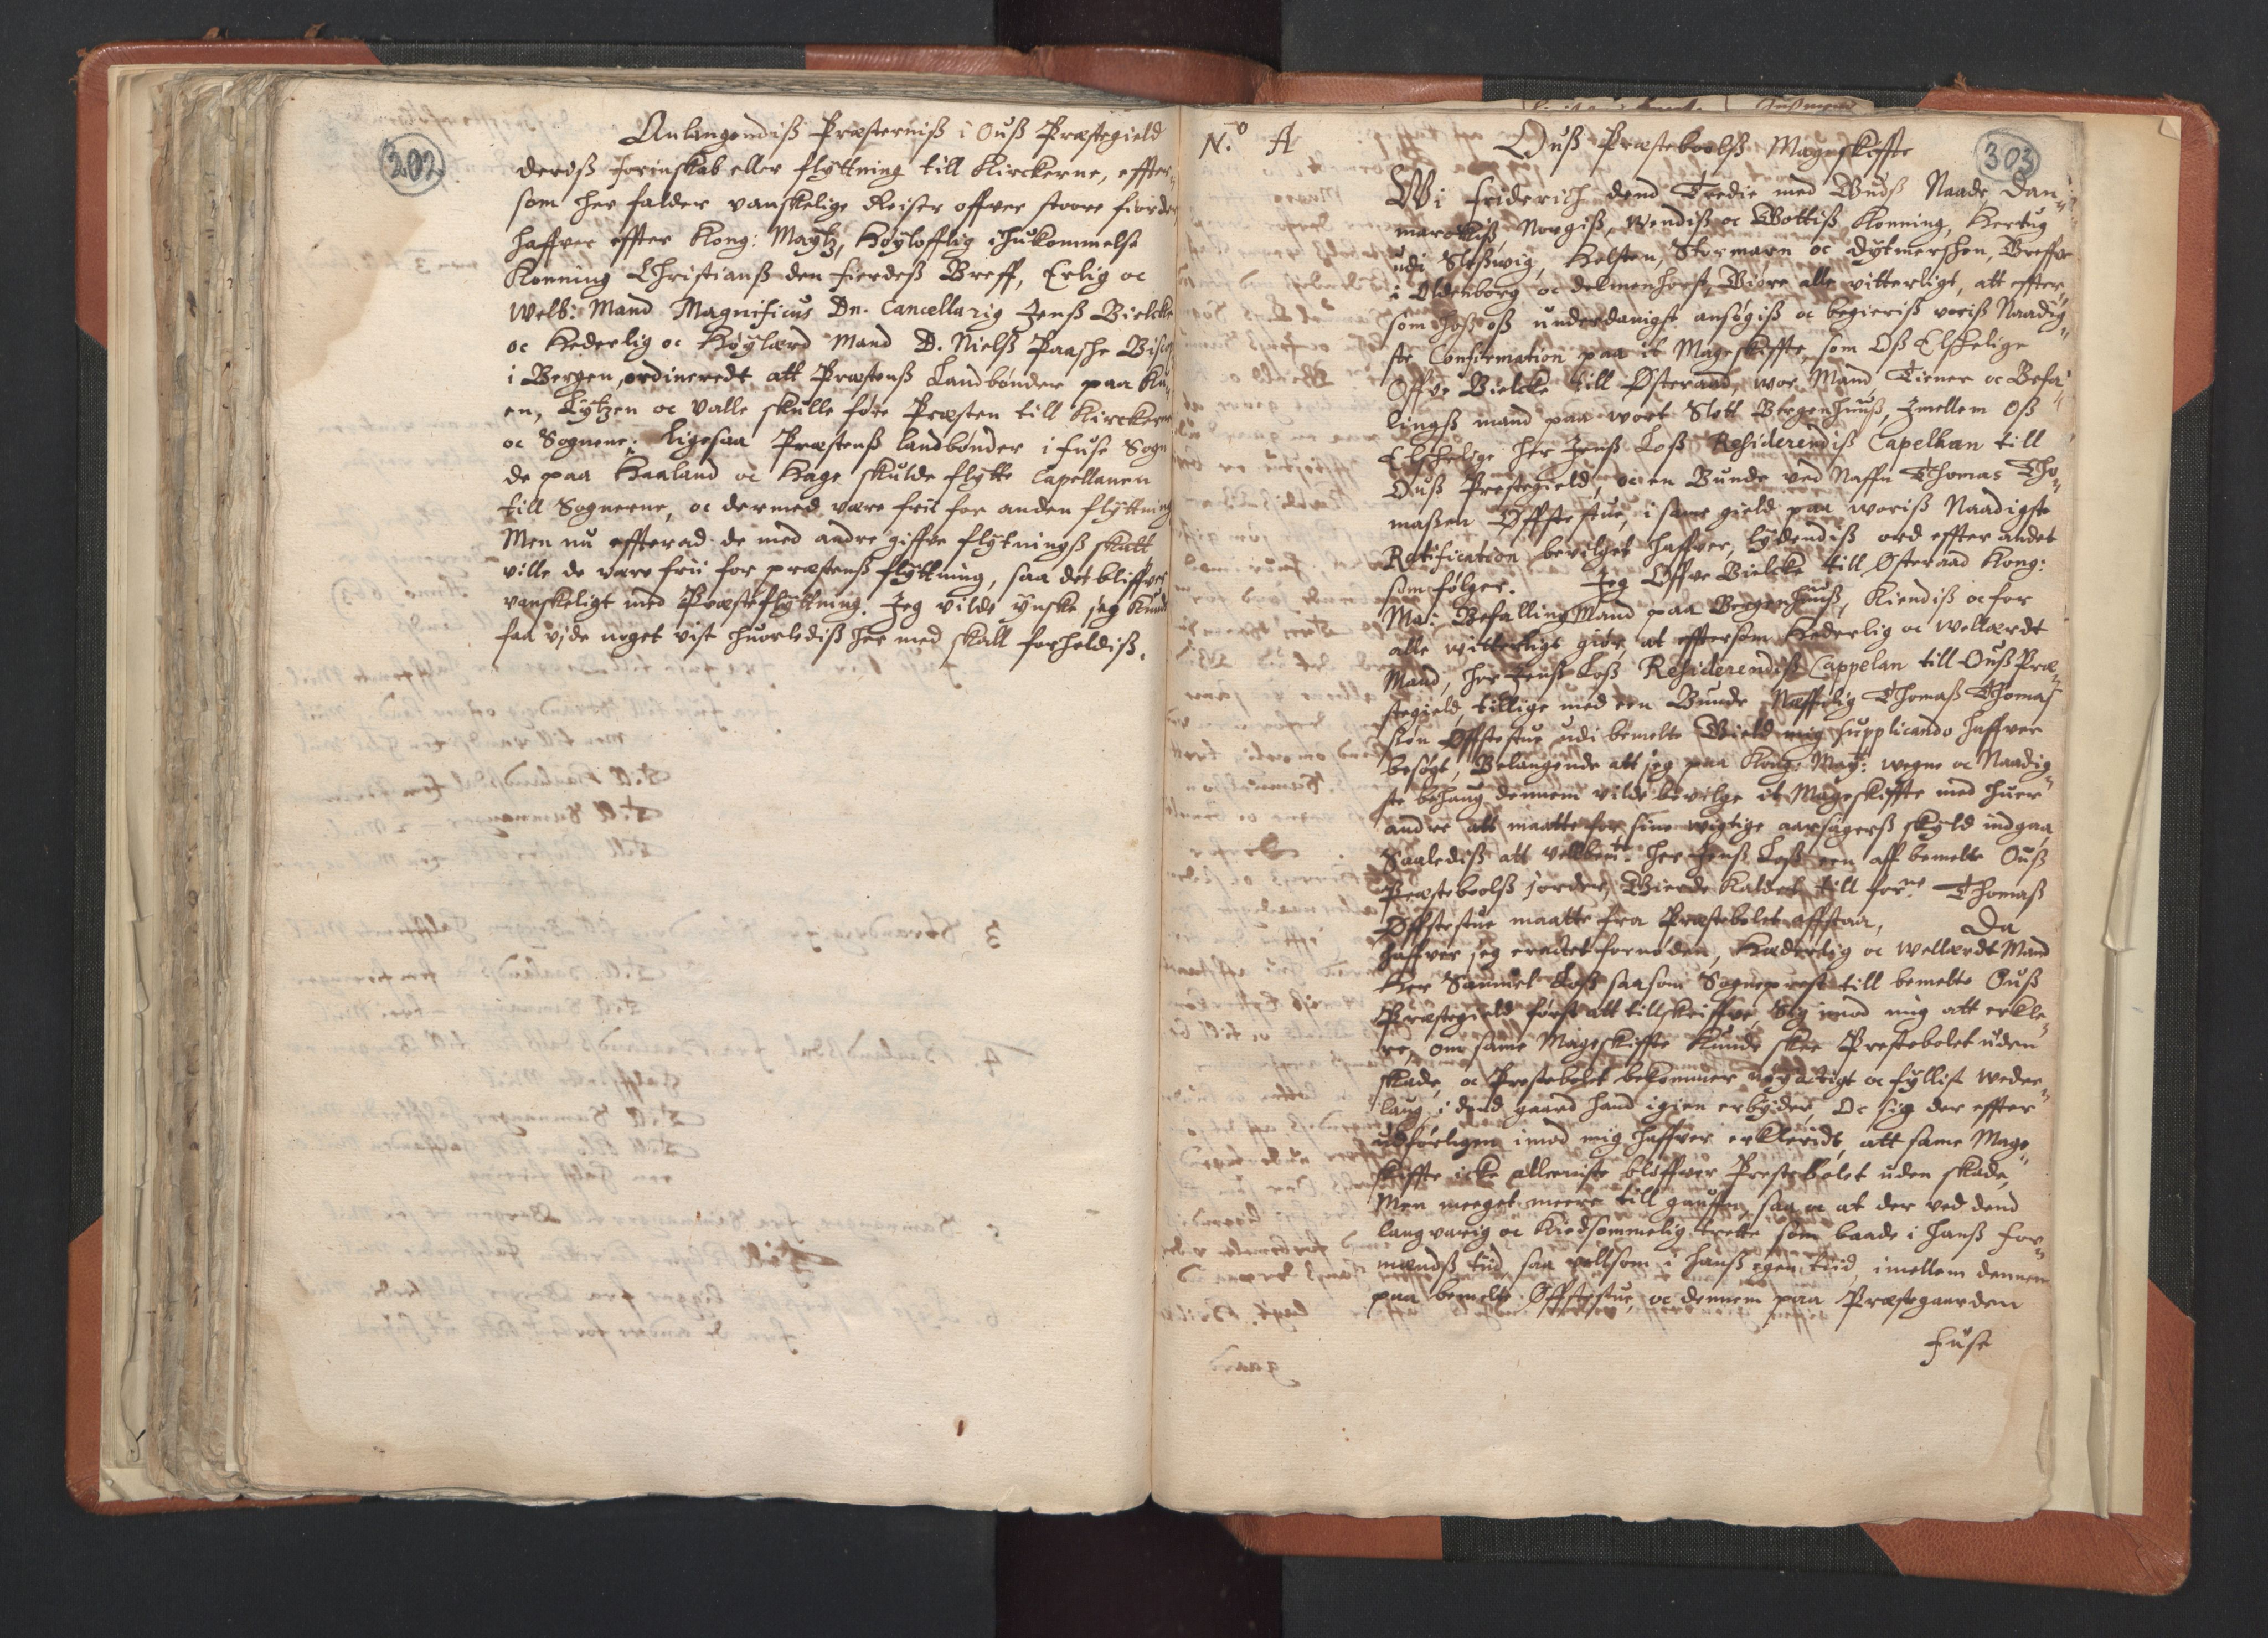 202
Anlangendiß Præsterniß i Ouß Præstegield
deriß forinskab eller flyttning till Kirckerne, effter„
som her falder vanskelige Reiser offver stoore fiorder
haffver effter Kong: Maytz, Høylofflig ihukommelse
Konning Christianß den fierdeß Breff, Erlig oc
Welb: Mand Magnificus Dn. Cancellarig Jenß Bielcke
oc Hederlig oc Høylærd Mand D. Nielß Paaske Bisco
i Bergen, ordineredt att Præstenß Landbønder paa Ku„
en, Lytzen oc Valle skulle føre Præsten till Kirckerne
oc Sognene; ligesaa Præstenß landbønder i Fuse Sogn
de paa Haaland oc Hage skulde flytte Capellanen
till Sognerne, oc dermed være frii for anden flyttning
Men nu effterad de med andre giffve flytningß skatt
ville de være frii for præstenß flyttning, saa det bliffver
vanskeligt med Præsteflyttning. Jeg vilde ynske jeg kunde
faa vide noget vist huorlediß her med skall forholdiß.
303
N.º A
Ouß Præsteboelß Mageskiffte
Wi Friderich dend Tredie med Gudß Naade, Dan„
marckiß, Norgiß, Wendiß oc Gottiß Konning, Hertug
udi Sleßwig, Holsten, Stormarn oc Dytmershen, Greffve
i Oldenborg oc Delmenhorst, Giøre alle vitterligt, att effter„
som hoß oß underdanigst ansøgiß oc begieriß voriß Naadig„
ste Confirmation paa it Mageskiffte, som Oß Elskelige
Offve Bielcke till Østeraad, wor Mand Tiener oc Befa„
lingß mand paa wort Slott Bergenhuuß, Imellem Oß
Elskelige Her Jenß Loß Residerendiß Capellan till
Ouß Prestegield, oc en Bunde ved Naffn Thomas Tho„
maßen Øffstestue, i same gield paa woriß Naadigste
Ratification bevilget haffver, lydendiß ord effter andet
som følger. Jeg Offve Bielcke till Østeraad Kong:
Ma: Befalling Mand paa Bergenhuuß, Kiendiß oc for
alle witterligt giør, at efftersom Hederlig oc Wellærdt
Mand, Her Jenß Loß Residerendiß Cappelan till Ouß Præ„
stegield, tillige med een Bunde Næffnlig Thomaß Thomas
søn Øffstestue udi bemelte Gield mig supplicando haffver
besøgt, Belangende att jeg paa Kong: May: wegne oc Naadig„
ste behaug dennem vilde bevilge it Mageskiffte med huer
andre att maatte for sine wigtige aarsagerß skyld indgaa,
Saalediß att velbem:te Her Jenß Loß een aff bemelte Ouß
Præsteboelß jorder, Gierde kaldet till for:ne Thomaß
Øffstestue maatte fra Præstebolet affstaa, Da
haffver jeg eractet fornøden, Hæderlig oc Wellærdt Mand
Her Samuel Loß saasom Sogneprest till bemelte Ouß
Præstegield først att tillskriffve, sig imod mig att erkle„
re, om same Mageskiffte kunde skee Prestebolet uden
skade, oc Prestebolet bekommer nøyactigt oc fyllist weder„
laug i dend gaard hand igien erbyder, Oc sig der effter
udførligen imod mig haffver erkleridt, att same Mage„
skiffte icke alleeniste bliffver Prestebolet uden skade,
Men meeget meere till gauffn, saa oc at der ved dend
langvarig oc kiedsommelig trette som baade i hanß for„
mandß tiid saa vellsom i hanß egen tiid, imellem dennem
paa bemelte Øffstestue, oc dennem paa Præstegaarden
Fuse